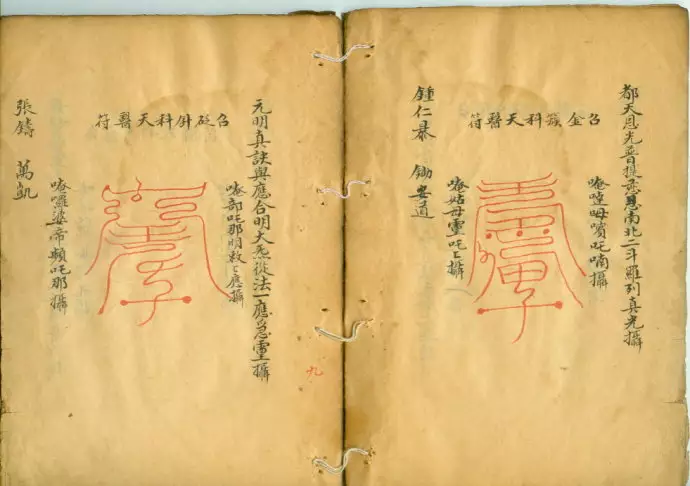 都天恩光普提恩南北二斗羅列真光攝
召金簇科天醫符
唵吒喃攝
唵姑母靈吒匕攝
鍾仁暴 鋤安道
元明真訣與應合明大炁從法一應急靈攝
召砭針科天醫符
唵部吒那明敕匕應攝
唵囉婆帝頼吒那攝
張鑄 萬凱
九